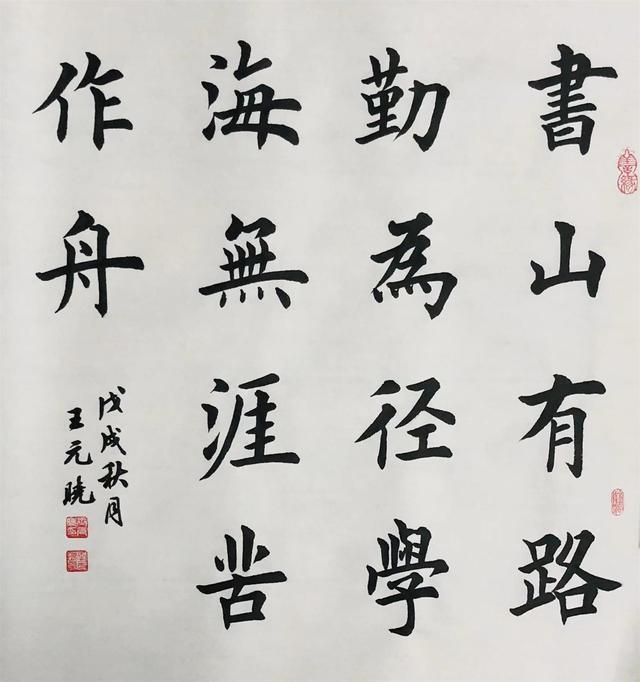 書山有路
勤為径學
海無涯苦
作舟
戊戌秋月
王元曉